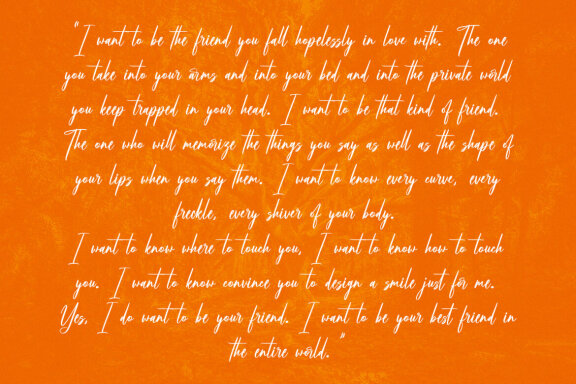 "I want to be the friend you fall hopelessly in love with. The one
you take into your arms and into your bed and into the private world
you keep trapped in your head. I want to be that kind of friend.
The one who will memorize the things you say as well as the shape of
your lips when you say them. I want to know every curve, every
freckle, every shiver of your body.
I want to know where to touch you, I want to know how to touch
you. I want to know convince you to design a smile just for me.
Yes, I do want to be your friend. I want to be your best friend in
the entire world."